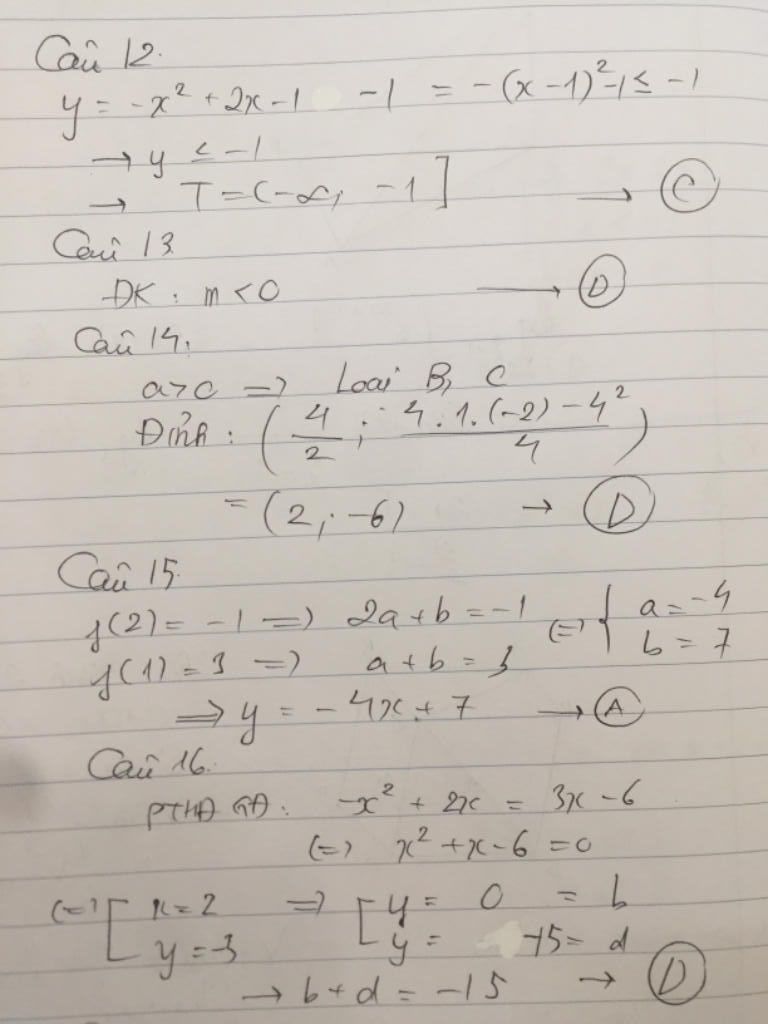 Câu 12.
y = -x² + 2x - 1 - 1 = -(x-1)² - 1 ≤ -1
→ y ≤ -1
→ T = (-∞; -1] → C
Câu 13
ĐK : m < 0 → D
Câu 14.
a > 0 => Loại B, C
Đỉnh : (4/2 ; 4.1.(-2) - 4²/4)
= (2; -6) → D
Câu 15.
f(2) = -1 => 2a + b = -1 (=) { a = -4
f(1) = 3 => a + b = 3 b = 7
=> y = -4x + 7 → A
Câu 16.
PTHĐGĐ: -x² + 2x = 3x - 6
(=) x² + x - 6 = 0
(=) [ x = 2 => [ y = 0 = b
y = -3 y = -15 = d
→ b + d = -15 → D